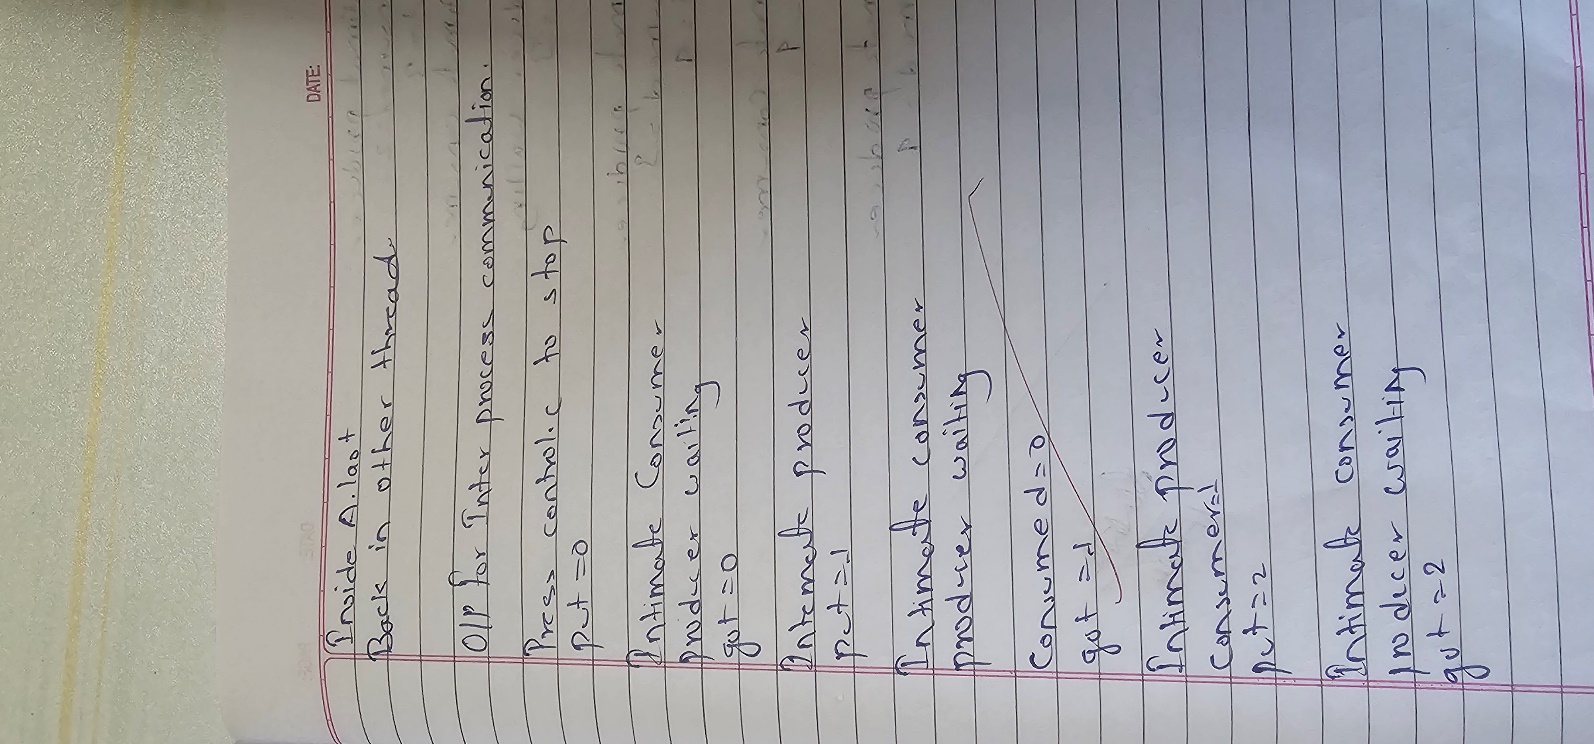 DATE:
Inside A.last
Back in other thread
O/P for Inter process communication.
Press control.c to stop
put=0
Intimate Consumer
producer waiting
got=0
Intemate producer
put=1
Intimate consumer
producer waiting
Consumed=0
got=1
Intimate producer
Consumer=1
put=2
Intimate consumer
producer waiting
got=2